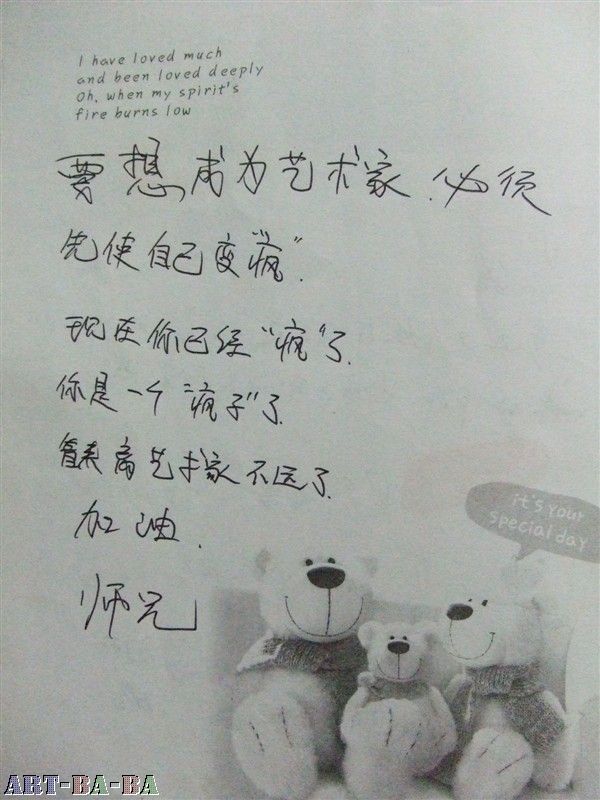 I have loved much
and been loved deeply
Oh, when my spirit's
fire burns low
要想成为艺术家.必须
先使自己变"疯".
现在你已经"疯"了.
你是一个"疯子"了.
离艺术家不远了.
加油.
师兄
it's your
special day
ART-BA-BA